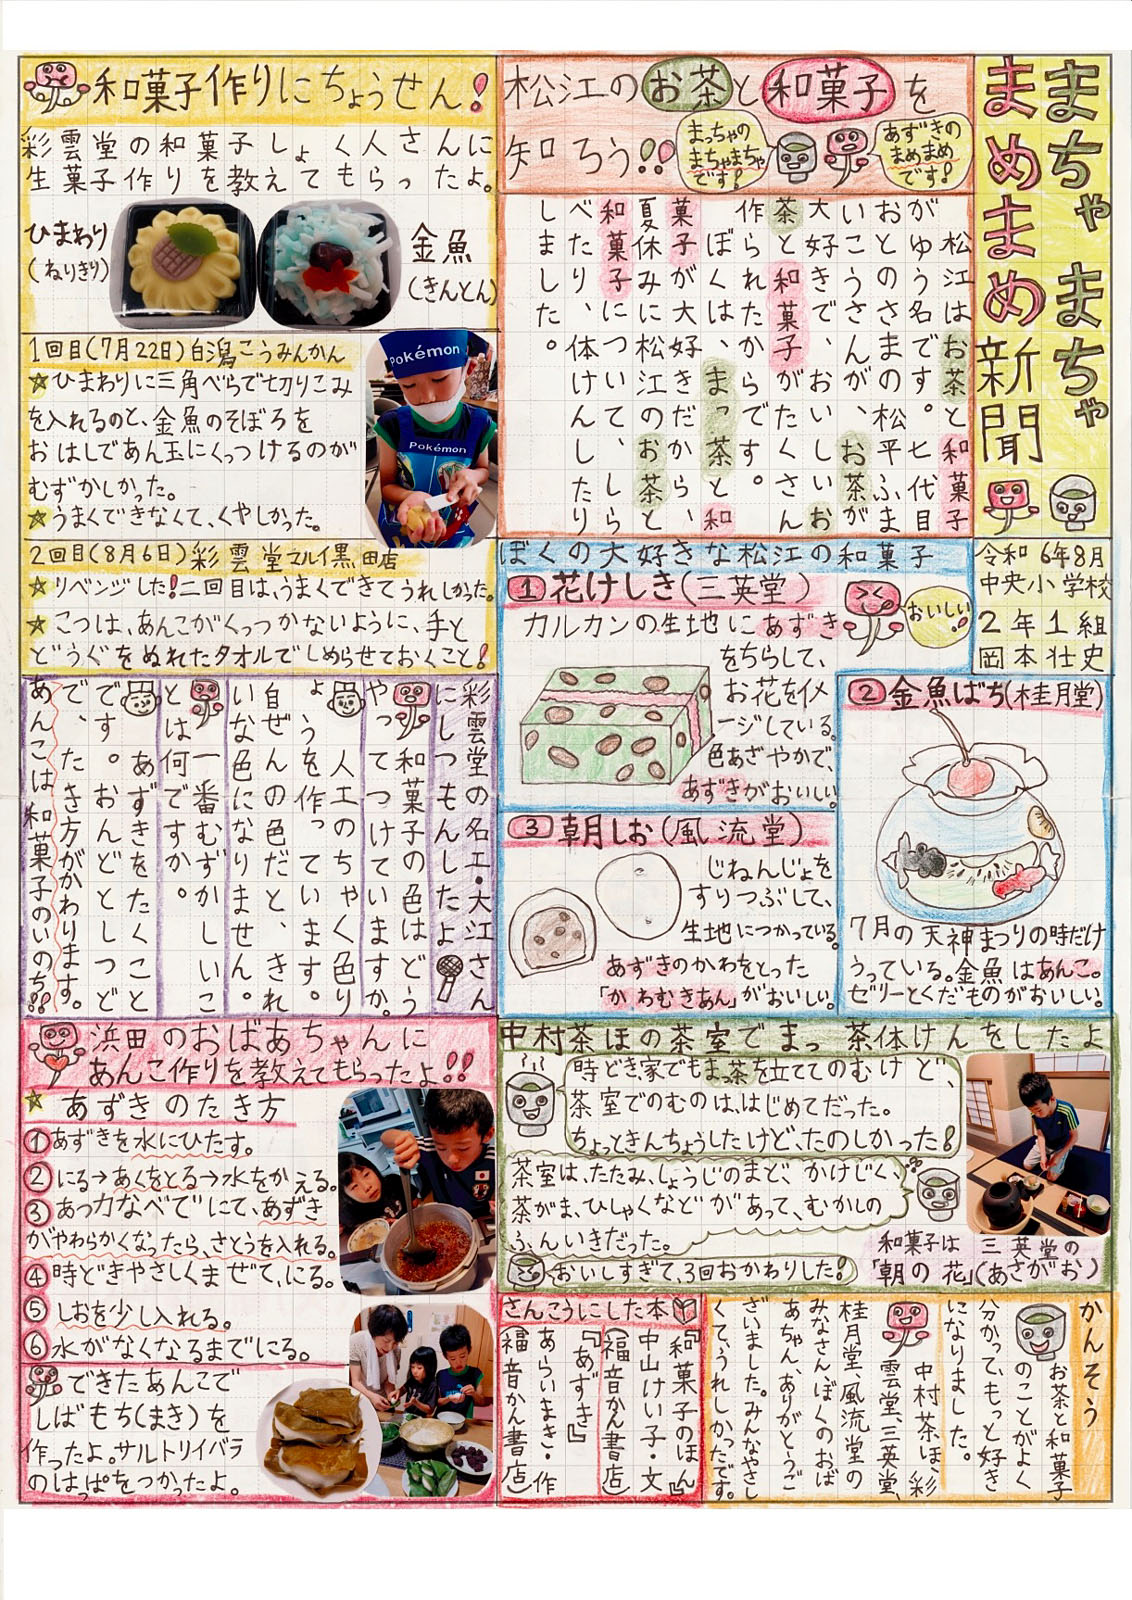 まちゃまちゃ
まめまめ新聞
令和6年8月
中央小学校
2年1組
岡本壮史
松江のお茶と和菓子を
知ろう!!
まっちゃの
まちゃまちゃ
です!
あずきの
まめまめ
です!
松江はお茶と和菓子
がゆう名です。七代目
おとのさまの松平ふま
いこうさんが、お茶が
大好きで、おいしいお
茶と和菓子がたくさん
作られたからです。
ぼくは、まっ茶と和
菓子が大好きだから、
夏休みに松江のお茶と
和菓子について、しら
べたり、体けんしたり
しました。
和菓子作りにちょうせん!
彩雲堂の和菓子しょく人さんに
生菓子作りを教えてもらったよ。
ひまわり
(ねりきり)
金魚
(きんとん)
1回目(7月22日)白潟こうみんかん
☆ひまわりに三角べらで切りこみ
を入れるのと、金魚のそぼろを
おはしであん玉にくっつけるのが
むずかしかった。
☆うまくできなくて、くやしかった。
Pokémon
Pokémon
2回目(8月6日)彩雲堂マルイ黒田店
☆リベンジした!二回目は、うまくできてうれしかった。
☆こつは、あんこがくっつかないように、手と
どうぐをぬれたタオルでしめらせておくこと!
ぼくの大好きな松江の和菓子
①花けしき(三英堂)
おいしい!
カルカンの生地にあずき
をちらして、
お花をイメ
ージしている。
色あざやかで、
あずきがおいしい。
②金魚ばち(桂月堂)
7月の天神まつりの時だけ
うっている。金魚はあんこ。
ゼリーとくだものがおいしい。
③朝しお(風流堂)
じねんじょを
すりつぶして、
生地につかっている。
あずきのかわをとった
「かわむきあん」がおいしい。
彩雲堂の名工・大江さん
にしつもんしたよ
和菓子の色はどう
やってつけていますか。
人工のちゃく色り
ょうを作っています。
自ぜんの色だと、きれ
いな色になりません。
一番むずかしいこ
とは何ですか。
あずきをたくこと
です。おんどとしつど
で、たき方がかわります。
あんこは和菓子のいのち!!
中村茶ほの茶室でまっ茶体けんをしたよ
時どき家でもまっ茶を立ててのむけど、
茶室でのむのは、はじめてだった。
ちょっときんちょうしたけど、たのしかった!
茶室は、たたみ、しょうじのまど、かけじく、
茶がま、ひしゃくなどがあって、むかしの
ふんいきだった。
おいしすぎて、3回おかわりした!
和菓子は三英堂の
「朝の花」(あさがお)
浜田のおばあちゃんに
あんこ作りを教えてもらったよ!!
☆あずきのたき方
①あずきを水にひたす。
②にる→あくをとる→水をかえる。
③あつ力なべでにて、あずき
がやわらかくなったら、さとうを入れる。
④時どきやさしくまぜて、にる。
⑤しおを少し入れる。
⑥水がなくなるまでにる。
できたあんこで
しばもち(まき)を
作ったよ。サルトリイバラ
のはっぱをつかったよ。
かんそう
お茶と和菓子
のことがよく
分かって、もっと好き
になりました。
中村茶ほ、彩
雲堂、三英堂、
桂月堂、風流堂の
みなさん、ぼくのおば
あちゃん、ありがとうご
ざいました。みんなやさし
くて、うれしかったです。
さんこうにした本
『和菓子のほん』
中山けい子・文
(福音かん書店)
『あずき』
あらいまき・作
(福音かん書店)